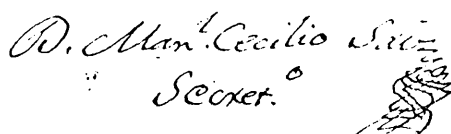 D. Man.l Cecilio Saiz
Secret.o